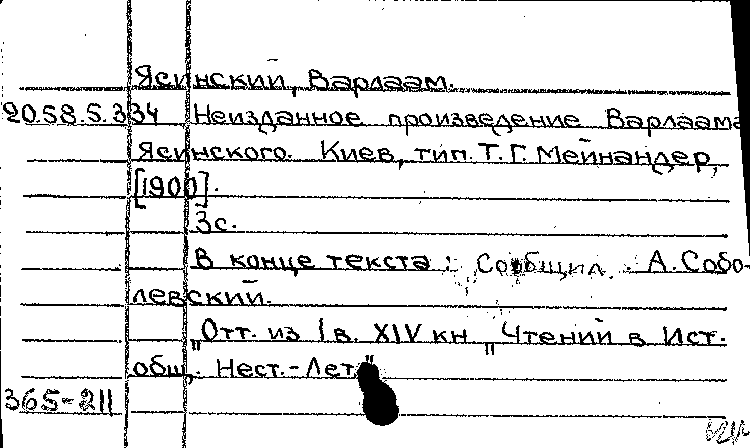 Ясинский, Варлаам.
20.58.5.334 Неизданное произведение Варлаама
Ясинского. Киев, тип. Т.Г. Мейнандер,
[1900].
3с.
В конце текста: Сообщил А. Собо-
левский.
"Отт. из I в. XIV кн "Чтений в Ист.
общ. Нест.-Лет"
365-211